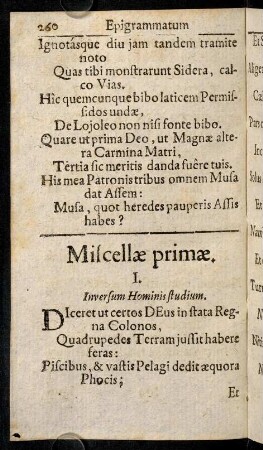 260 Epigrammatum
Ignotásque diu jam tandem tramite
noto
Quas tibi monstrarunt Sidera, cal-
co Vias.
Hîc quemcunque bibo laticem Permis-
sidos undæ,
De Lojoleo non nisi fonte bibo.
Quare ut prima Deo, ut Magnæ alte-
ra Carmina Matri,
Tertia sic meritis danda fuêre tuis.
His mea Patronis tribus omnem Musa
dat Assem:
Musa, quot heredes pauperis Assis
habes?
Miscellæ primæ.
I.
Inversum Hominis studium.
DIceret ut certos DEus in stata Reg-
na Colonos,
Quadrupedes Terram jussit habere
feras:
Piscibus, & vastis Pelagi dedit æquora
Phocis;
Et